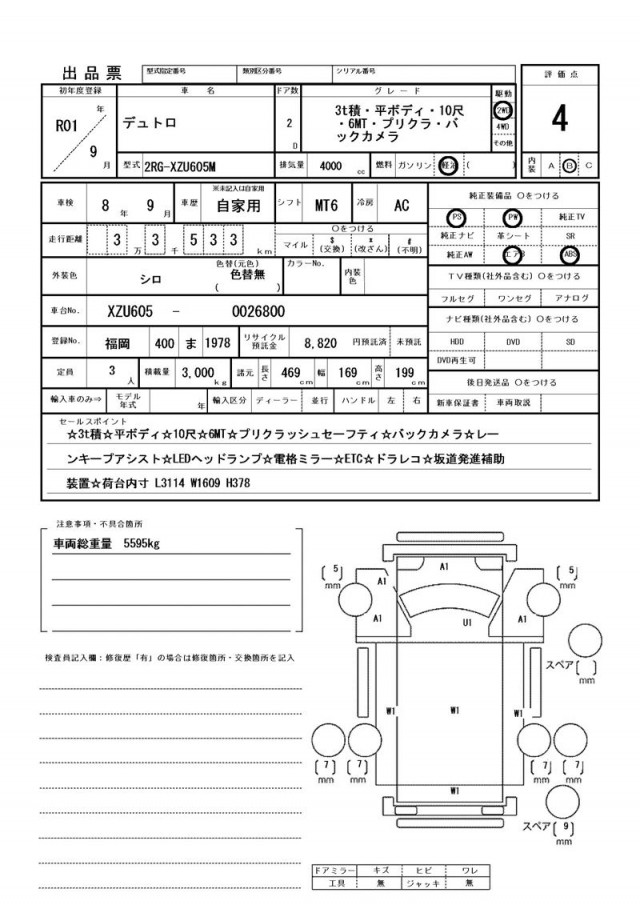 出品票
型式指定番号 類別区分番号 シリアル番号
評価点
初年度登録 車 名 ドア数 グレード 駆動
R01 年 9 月
デュトロ
2 D
3t積・平ボディ・10尺
・6MT・プリクラ・バ
ックカメラ
2WD
4WD
その他
4
型式 2RG-XZU605M 排気量 4000 cc 燃料 ガソリン 軽油 ( )
内装 A B C
車検 8 年 9 月 車歴 ※未記入は自家用 自家用 シフト MT6 冷房 AC
純正装備品 〇をつける
PS PW 純正TV
走行距離 3 万 3 千 5 3 3 km
〇をつける
マイル $ (交換) * (改ざん) # (不明)
純正ナビ 革シート SR
純正AW エアB ABS
外装色 シロ 色替(元色) 色替無 ( ) カラーNo. 内装色
TV種類(社外品含む) 〇をつける
フルセグ ワンセグ アナログ
車台No. XZU605 - 0026800
ナビ種類(社外品含む) 〇をつける
登録No. 福岡 400 ま 1978 リサイクル預託金 8,820 円預託済 未預託
HDD DVD SD
DVD再生可
定員 3 人 積載量 3,000 kg 諸元 長さ 469 cm 幅 169 cm 高さ 199 cm
後日発送品 〇をつける
輸入車のみ⇒ モデル年式 年 輸入区分 ディーラー 並行 ハンドル 左 右
新車保証書 車両取説
セールスポイント
☆3t積☆平ボディ☆10尺☆6MT☆プリクラッシュセーフティ☆バックカメラ☆レー
ンキープアシスト☆LEDヘッドランプ☆電格ミラー☆ETC☆ドラレコ☆坂道発進補助
装置☆荷台内寸 L3114 W1609 H378
注意事項・不具合箇所
車両総重量 5595kg
検査員記入欄：修復歴「有」の場合は修復箇所・交換箇所を記入
A1
(5) mm
A1
(5) mm
A1
A1
U1
A1
スペア( ) mm
W1
W1
W1
(7) mm
(7) mm
(7) mm
(7) mm
W1
スペア(9) mm
ドアミラー キズ ヒビ ワレ
工具 無 ジャッキ 無